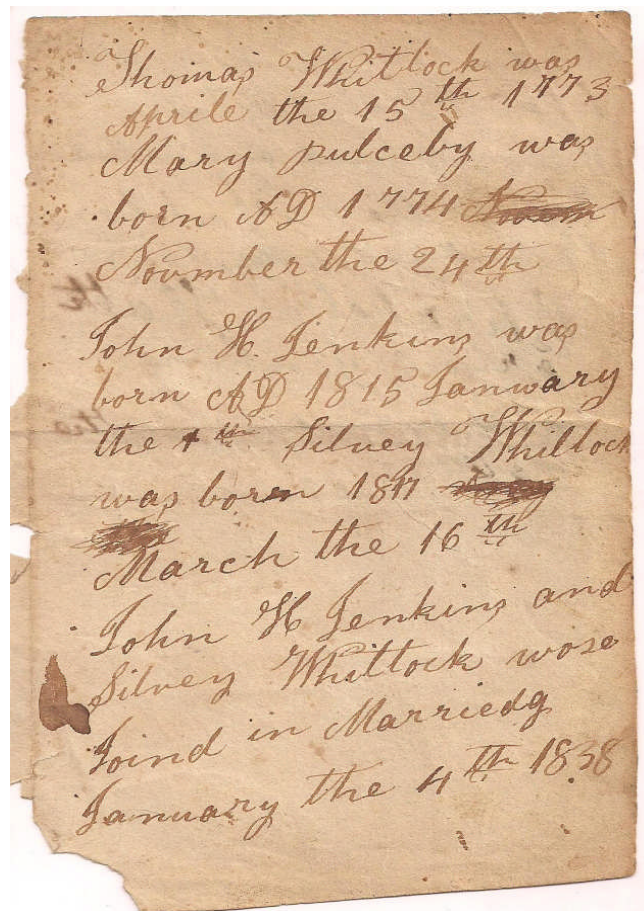 Thomas Whitlock was
Aprile the 15th 1773
Mary pulceby was
born AD 1774
Novmber the 24th
John H. Jenkins was
born AD 1815 Janwary
the 4th Silvey Whitlock
was born 1817
March the 16th
John H Jenkins and
Silvey Whitlock wose
Joind in Marriedg
January the 4th 1838